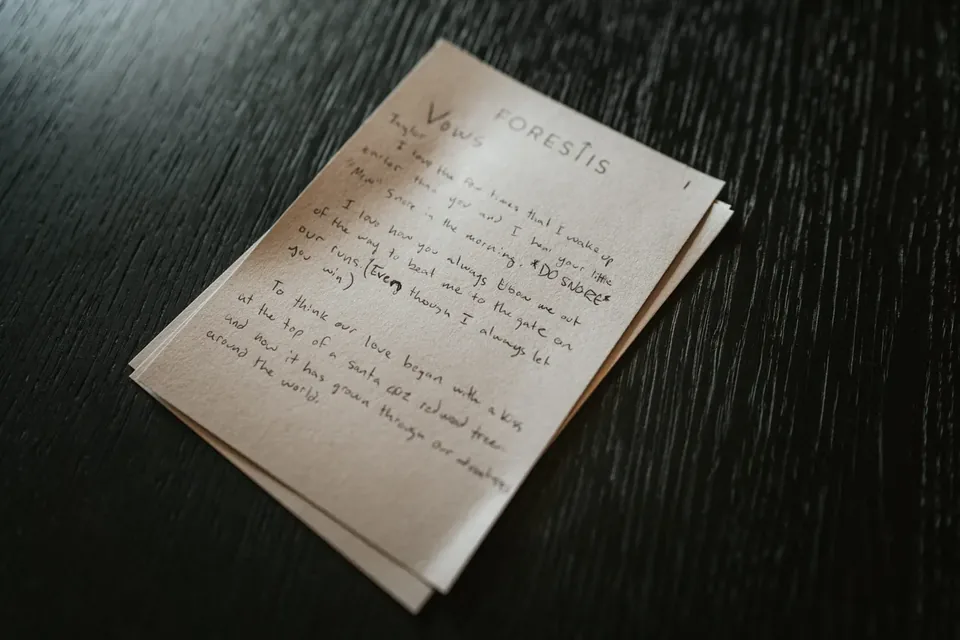 FORESTIS
1
Vows
Taylor
I love the few times that I wake up
earlier than you and I hear your little
"Mim" Snore in the morning. *DO SNORE*
I love how you always Elbow me out
of the way to beat me to the gate on
our runs. (Even though I always let
you win)
To think our love began with a kiss
at the top of a santa cruz redwood tree.
and now it has grown through our adventures
around the world.